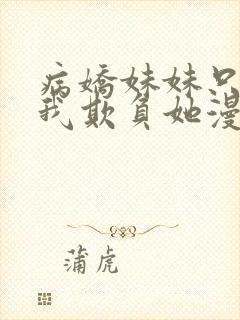 病嬌妹妹只
我欺負她漫
蒲虎